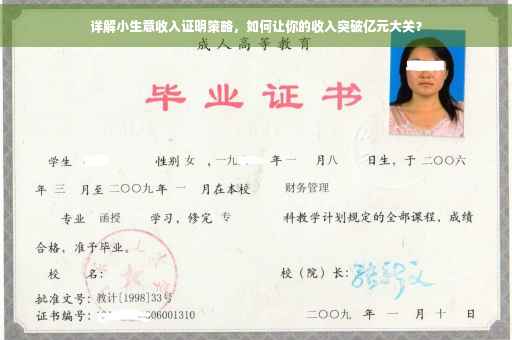 详解小生意收入证明策略，如何让你的收入突破亿元大关？
成人高等教育
毕业证书
学生 性别 女 ，一九 年 一 月八 日生，于 二〇〇六
年 三 月至 二〇〇九 年 一 月在本校 财务管理
专业 函授 学习，修完 专 科教学计划规定的全部课程，成绩
合格，准予毕业。
校 名： 校（院）长：
批准文号：教计[1998]33号
证书编号： 06001310 二〇〇九 年 一 月 十 日